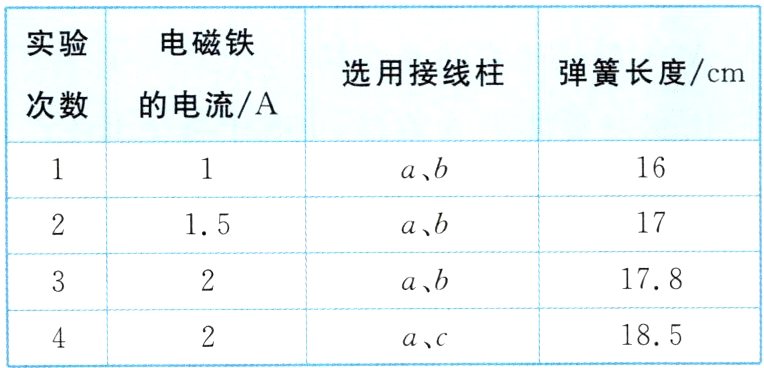 实验次数 电磁铁的电流/A 选用接线柱 弹簧长度/cm
1 1 a、b 16
2 1.5 a、b 17
3 2 a、b 17.8
4 2 a、c 18.5